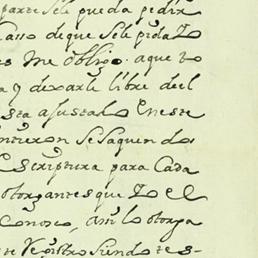 parte sele pueda pedir
Casso de que sele pida Lo
es me obligo. a que to
a y dexarle libre del
sta ajustado En este
nturon se saquen dos
Escriptura para Cada
otorgantes que Yo el
Conosco, assi lo otorga
te Registro siendo tes-